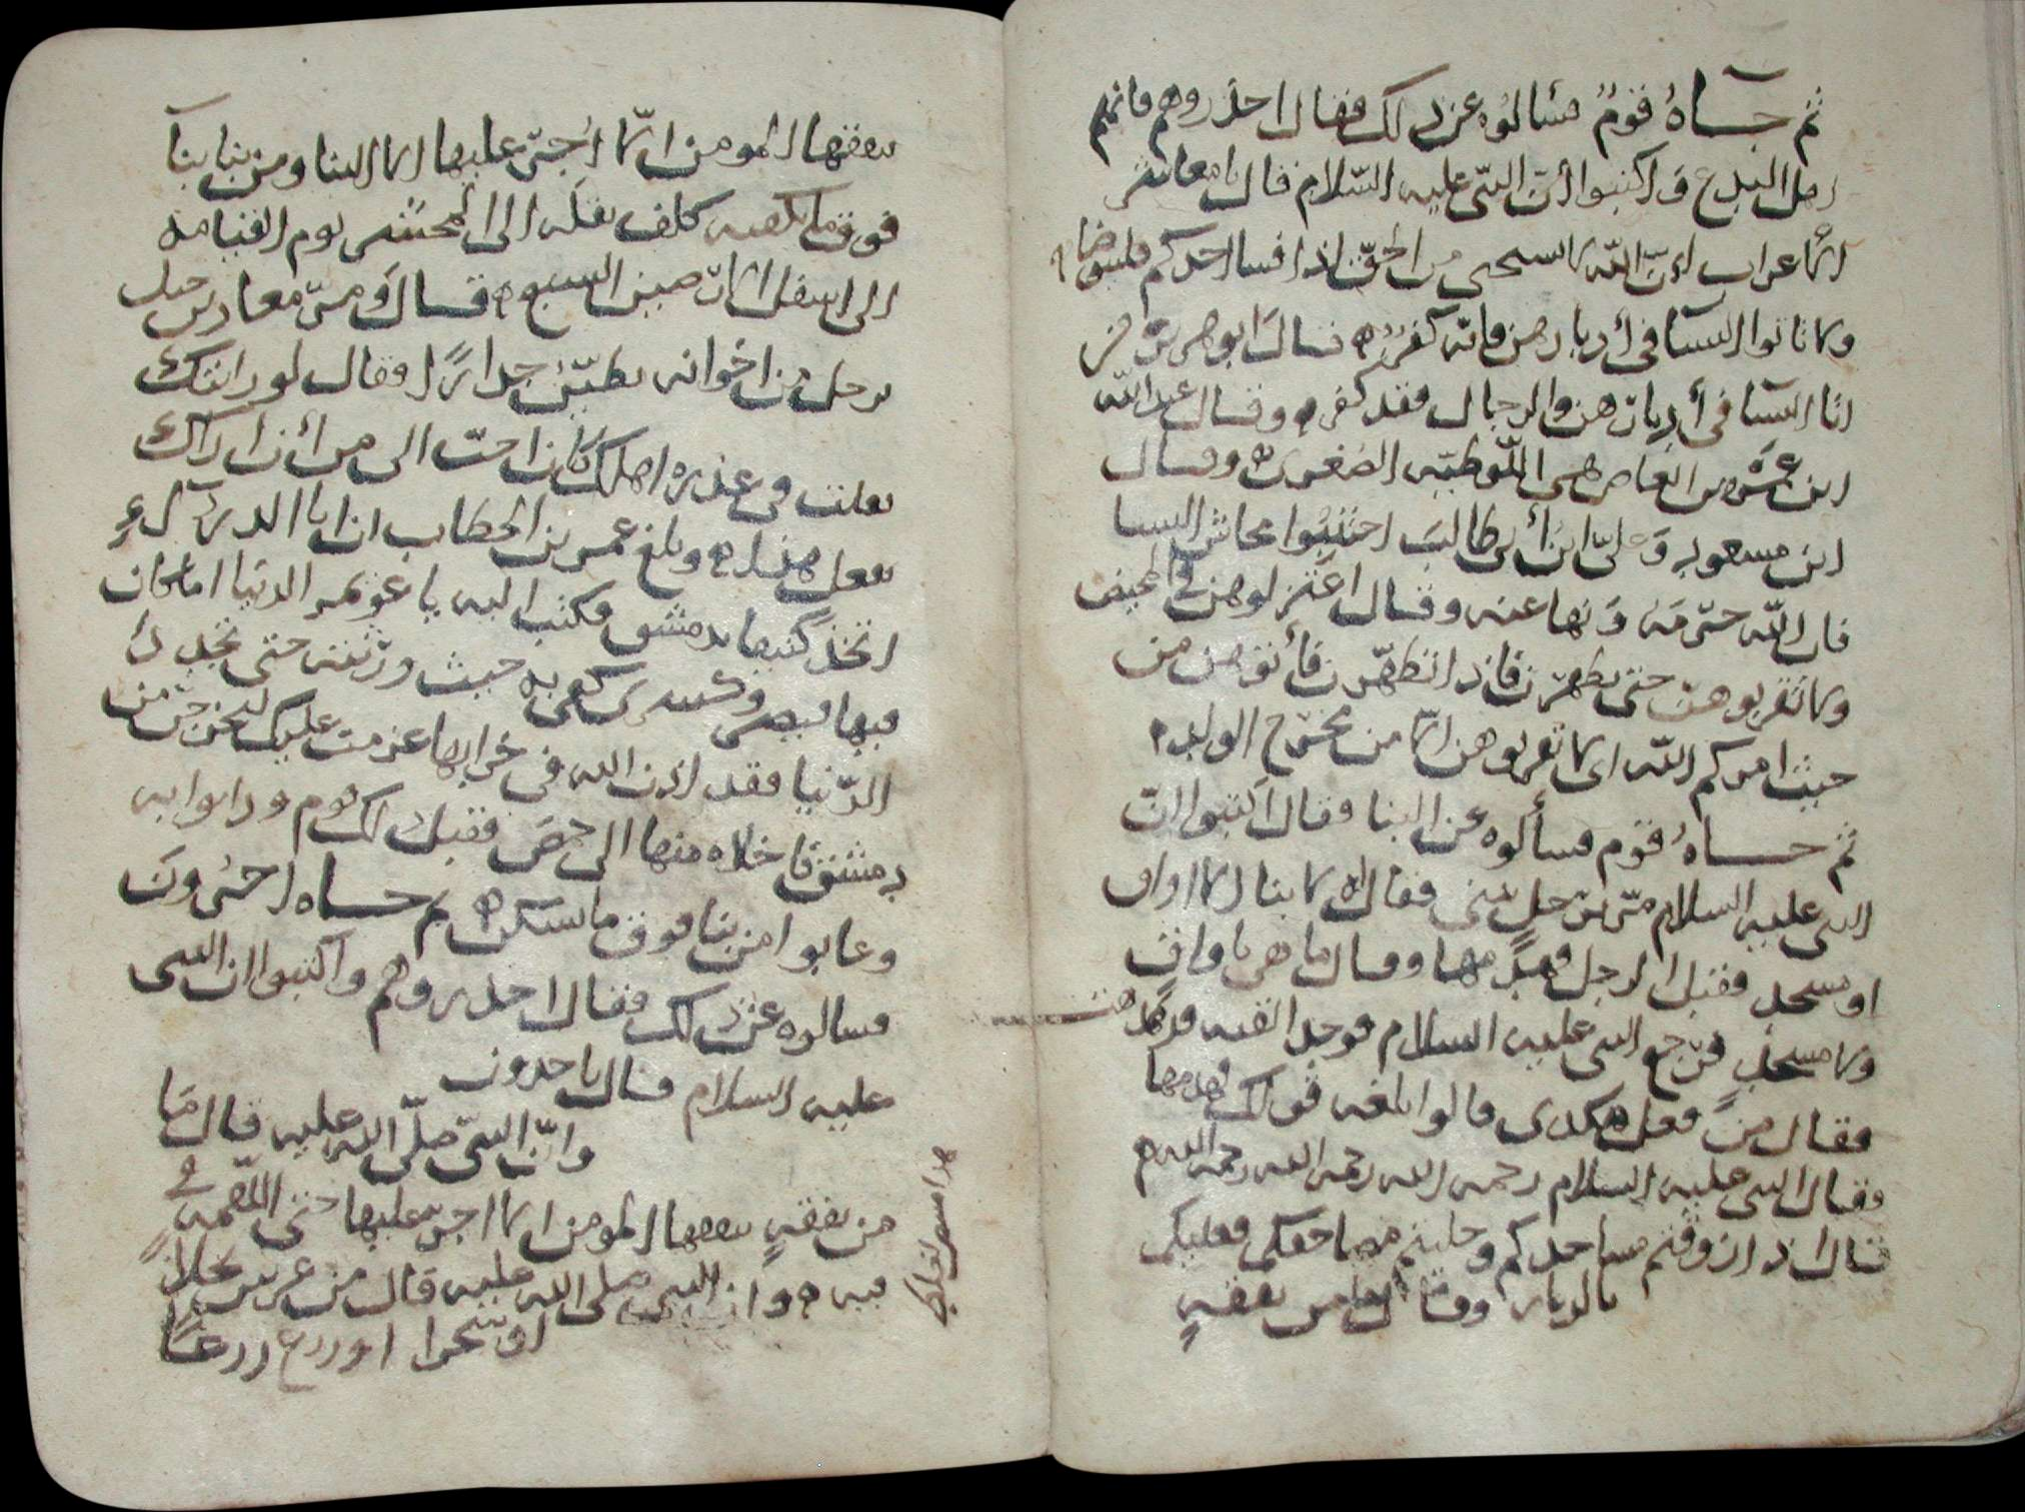 ثم جاه قوم فسالوه عن ذلك فقال احذروهم فانهم
اهل البدع واكتبوا أن النبي عليه السلام قال يا معاشر
الاعراب ان الله لا يستحي من الحق اذا فسا احدكم فليتوضا
ولا تاتوا النسا في أدبارهن فانه كفر قال ابو هريرة من
اتا النسا في أدبارهن والرجال فقد كفر وقال عبد الله
ابن عمرو بن العاص هي اللوطية الصغرى وقال
ابن مسعود وعلى ابن أبي طالب اجتنبوا محاش النسا
فان الله حرمه ونها عنه وقال اعتزلوهن في المحيض
ولا تقربوهن حتى يطهرن فاذا تطهرن فأتوهن من
حيث امركم الله اي لا تقربوهن الا من مخرج الولد
ثم جاه قوم فسألوه عن البنا فقال اكتبوا ان
النبي عليه السلام مر برجل يبني فقال له لا بنا الا اواق
او مسجد فقبل الرجل فهدمها وقال ما هي باواق
ولا مسجد فرجع النبي عليه السلام فوجد القبه قد هدمت
فقال من فعل هكدى قالوا بلغه قولك فهدمها
فقال النبي عليه السلام رحمه الله رحمه الله رحمه الله
قال اذا زوقتم مساجدكم وحليتم مصاحفكم فعليكم
بالدبار وقال ما من نفقه
ينفقها المومن الا أجر عليها الا البنا ومن بنا بنا
فوق ما يكفيه كلف نقله الى المحشر يوم القيامة
الى اسفل الارضين السبع قال ومر معاذ بن جبل
برجل من اخوانه يطين جدارا فقال لو رايتك
تعلت في عذرة اهلك كان احب الى من أن اراك
تفعل هذا وبلغ عمر بن الخطاب ان ابا الدردآ
اتخذ كنيفا بدمشق فكتب اليه يا عويمر الدنيا اما كان
فيها قيصر وكسرى كفى به حيث ورثته حتى تجدد
الدنيا فقد اذن الله في خرابها عزمت عليك لتخرجن من
دمشق فاخلاه منها الى حمص فقبل ذلك قوم ودانوا به
وعابوا من بنا فوق ما يسكن ثم جاه اخرون
فسالوه عن ذلك فقال احذروهم واكتبوا ان النبي
عليه السلام قال ياحدون
وان النبي صلى الله عليه قال ما
من نفقه ينفقها المومن الا اجر عليها حتى اللقمه في
فيه وان النبي صلى الله عليه قال من غرس نخلا
او شجرا او زرع زرعا